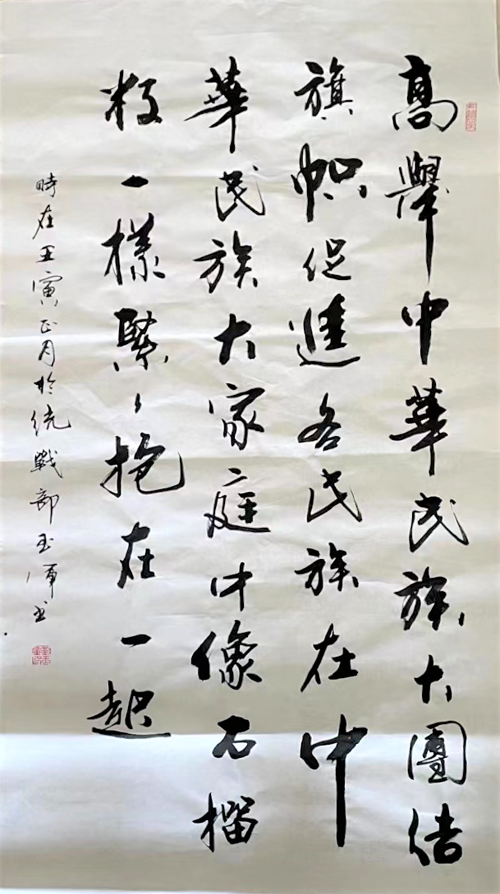 高舉中華民族大團结
旗幟促進各民族在中
華民族大家庭中像石榴
粒一樣緊〻抱在一起
時在壬寅正月於統戰部玉軍书